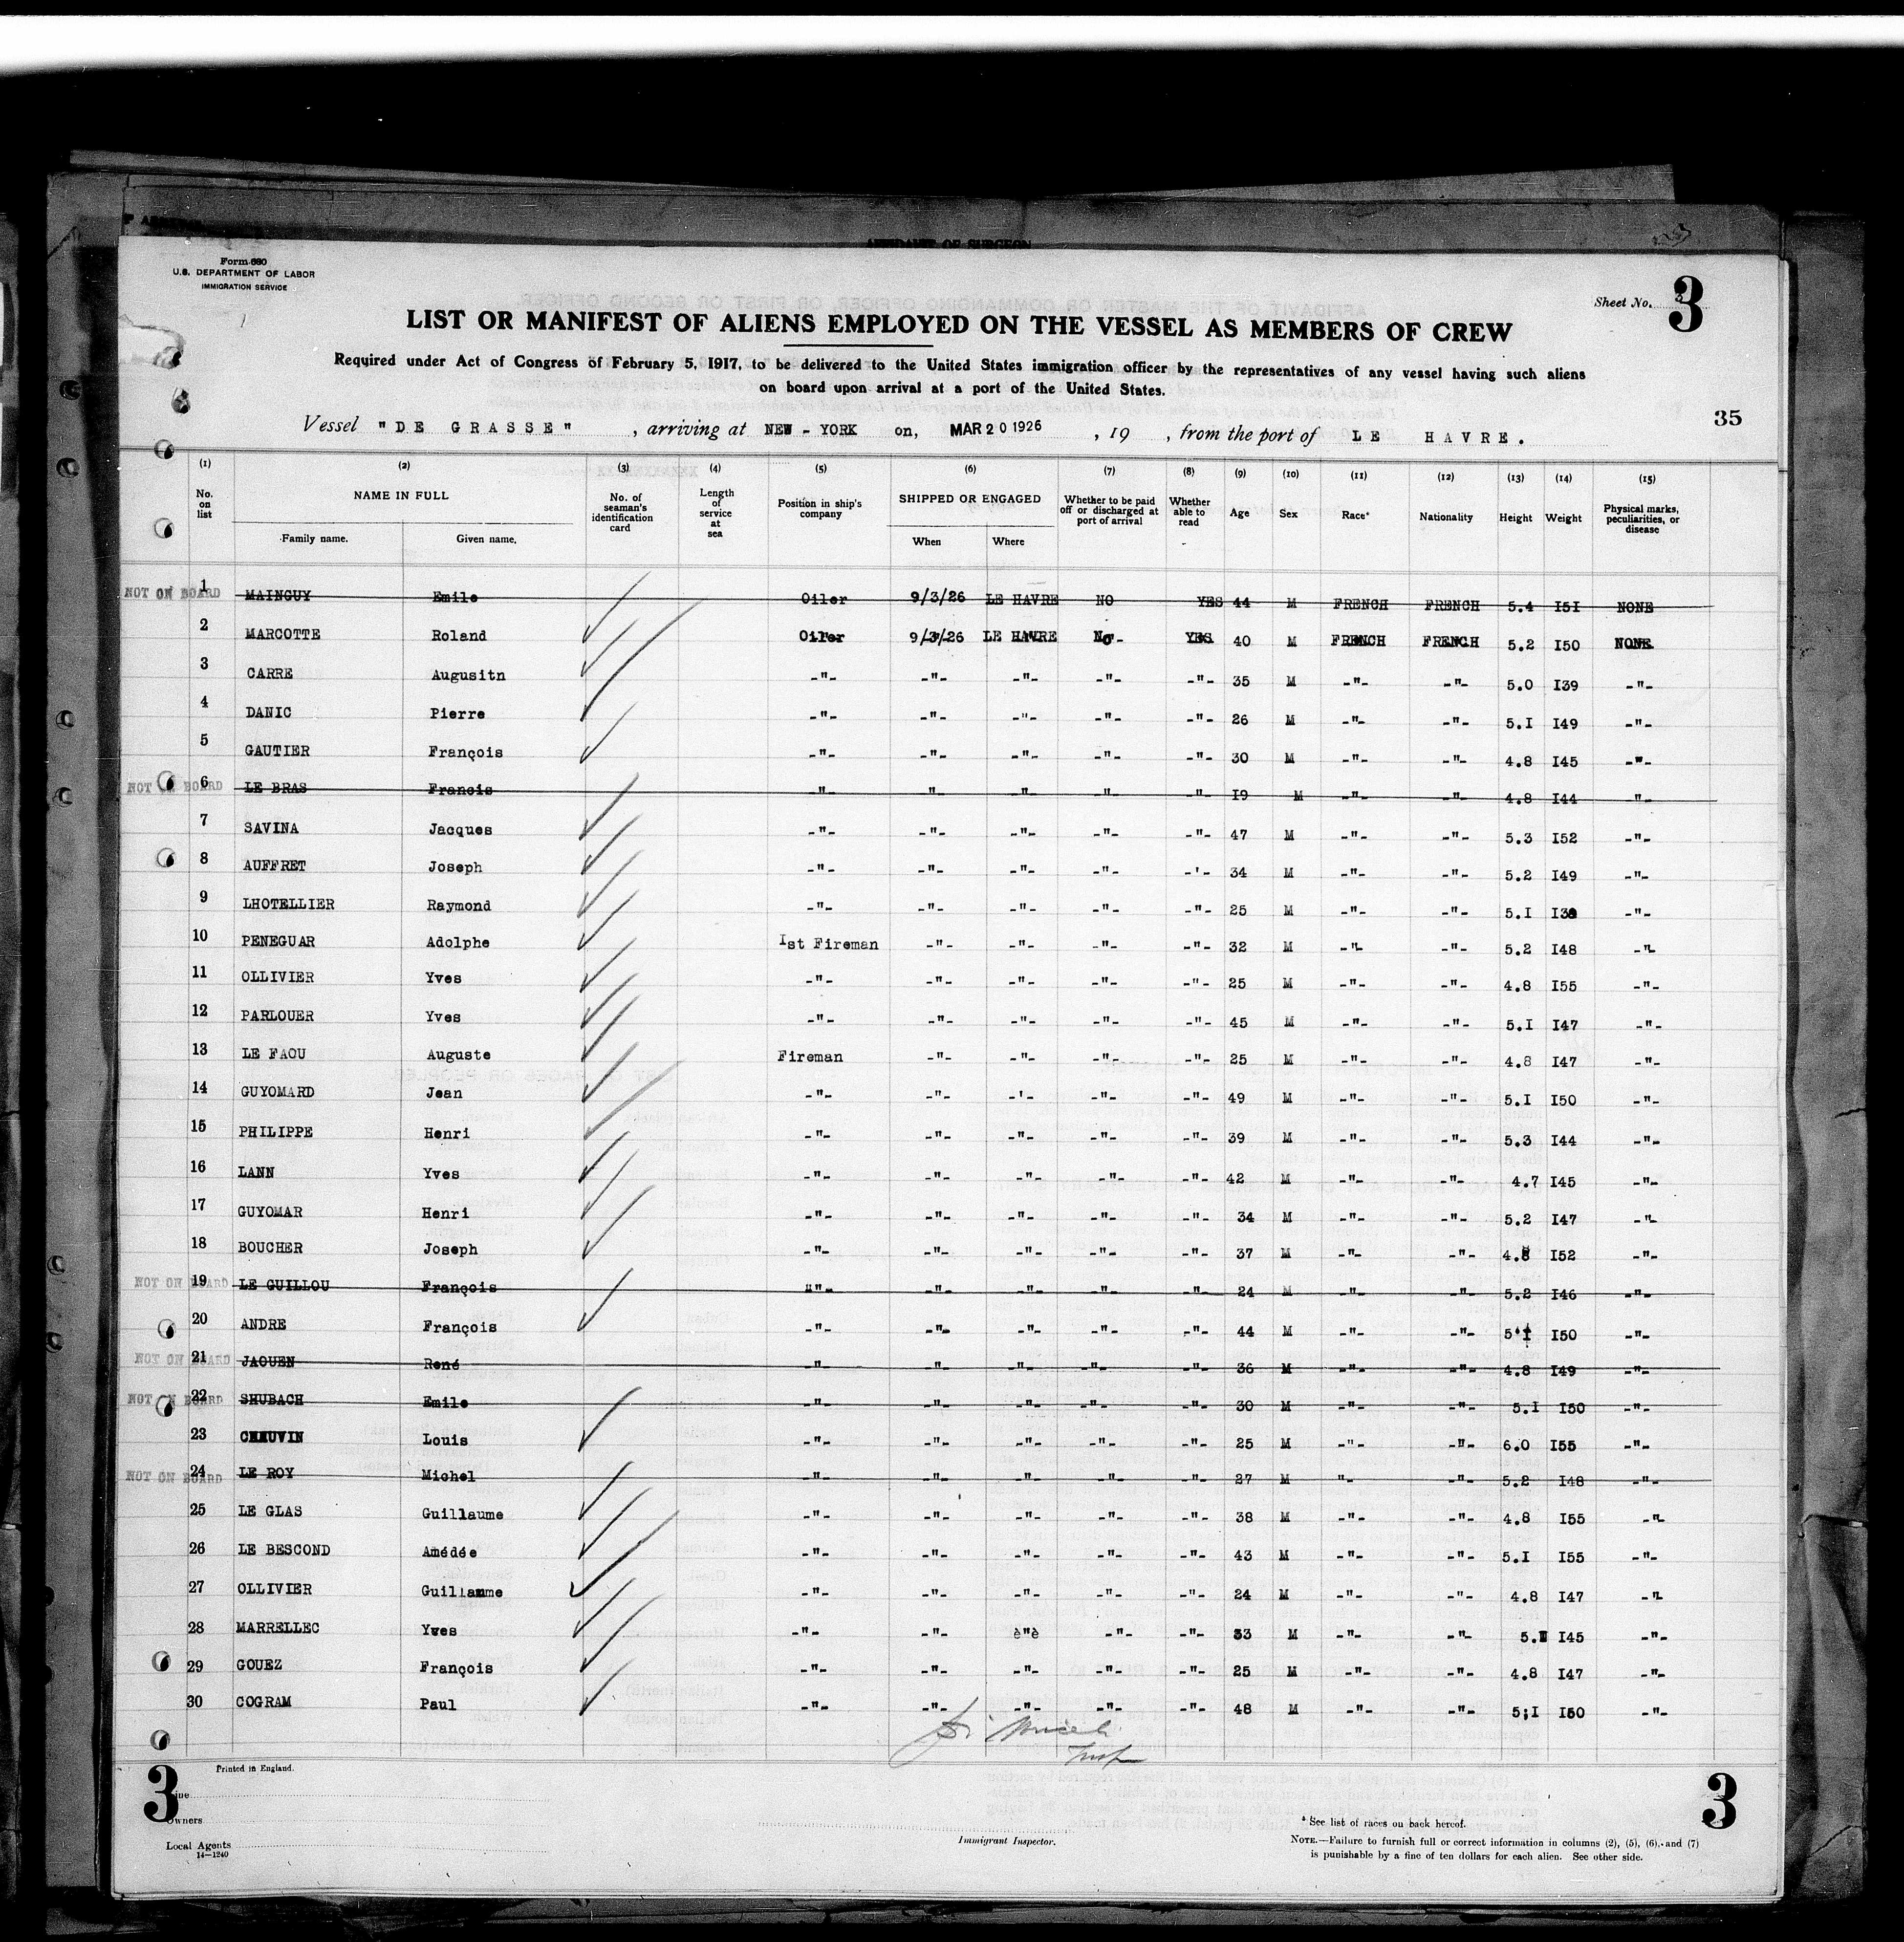 AFFIDAVIT OF SURGEON
Form 680
U.S. DEPARTMENT OF LABOR
IMMIGRATION SERVICE
Sheet No. 3
LIST OR MANIFEST OF ALIENS EMPLOYED ON THE VESSEL AS MEMBERS OF CREW
Required under Act of Congress of February 5, 1917, to be delivered to the United States immigration officer by the representatives of any vessel having such aliens
on board upon arrival at a port of the United States.
35
Vessel "DE GRASSE", arriving at NEW-YORK on, MAR 20 1926, 19 , from the port of LE HAVRE.
(1) (2) (3) (4) (5) (6) (7) (8) (9) (10) (11) (12) (13) (14) (15)
No. on list NAME IN FULL Family name. Given name. No. of seaman's identification card Length of service at sea Position in ship's company SHIPPED OR ENGAGED When Where Whether to be paid off or discharged at port of arrival Whether able to read Age Sex Race* Nationality Height Weight Physical marks, peculiarities, or disease
NOT ON BOARD 1 MAINGUY Emile Oiler 9/3/26 LE HAVRE NO YES 44 M FRENCH FRENCH 5.4 I5I NONE
2 MARCOTTE Roland Oiler 9/3/26 LE HAVRE No- YES 40 M FRENCH FRENCH 5.2 I50 NONE
3 CARRE Augusitn -"- -"- -"- -"- -"- 35 M -"- -"- 5.0 I39 -"-
4 DANIC Pierre -"- -"- -"- -"- -"- 26 M -"- -"- 5.I I49 -"-
5 GAUTIER François -"- -"- -"- -"- -"- 30 M -"- -"- 4.8 I45 -"-
NOT ON BOARD 6 LE BRAS Francis -"- -"- -"- -"- -"- I9 M -"- -"- 4.8 I44 -"-
7 SAVINA Jacques -"- -"- -"- -"- -"- 47 M -"- -"- 5.3 I52 -"-
8 AUFFRET Joseph -"- -"- -"- -"- -'- 34 M -"- -"- 5.2 I49 -"-
9 LHOTELLIER Raymond -"- -"- -"- -"- -"- 25 M -"- -"- 5.I -"-
10 PENEGUAR Adolphe Ist Fireman -"- -"- -"- -"- 32 M -"- -"- 5.2 I48 -"-
11 OLLIVIER Yves -"- -"- -"- -"- -"- 25 M -"- -"- 4.8 I55 -"-
12 PARLOUER Yves -"- -"- -"- -"- -"- 45 M -"- -"- 5.I I47 -"-
13 LE FAOU Auguste Fireman -"- -"- -"- -"- 25 M -"- -"- 4.8 I47 -"-
14 GUYOMARD Jean -"- -"- -'- -"- -"- 49 M -"- -"- 5.I I50 -"-
15 PHILIPPE Henri -"- -"- -"- -"- -"- 39 M -"- -"- 5.3 I44 -"-
16 LANN Yves -"- -"- -"- -"- -"- 42 M -"- -"- 4.7 I45 -"-
17 GUYOMAR Henri -"- -"- -"- -"- -"- 34 M -"- -"- 5.2 I47 -"-
18 BOUCHER Joseph -"- -"- -"- -"- -"- 37 M -"- -"- 4.8 I52 -"-
NOT ON BOARD 19 LE GUILLOU François ""- -"- -"- -"- -"- 24 M -"- -"- 5.2 I46 -"-
20 ANDRE François -"- -"- -"- -"- -"- 44 M -"- -"- 5'I I50 -"-
NOT ON BOARD 21 JAOUEN René -"- -"- -"- -"- -"- 36 M -"- -"- 4.8 I49 -"-
NOT ON BOARD 22 SHUBACH Emile -"- -"- -"- -"- -"- 30 M -"- -"- 5.I I50 -"-
23 Louis -"- -"- -"- -"- -"- 25 M -"- -"- 6.0 I55 -"-
NOT ON BOARD 24 LE ROY Michel -"- -"- -"- -"- -"- 27 M "- -"- 5.2 I48 -"-
25 LE GLAS Guillaume -"- -"- -"- -"- -"- 38 M -"- -"- 4.8 I55 -"-
26 LE BESCOND Amédée -"- -"- -"- -"- -"- 43 M -"- -"- 5.I I55 -"-
27 OLLIVIER Guillaume -"- -"- -"- -"- -"- 24 M -"- -"- 4.8 I47 -"-
28 MARRELLEC Yves -"- -"- è"è -"- -"- 33 M -"- -"- I45 -"-
29 GOUEZ François -"- -"- -"- -"- -"- 25 M -"- -"- 4.8 I47 -"-
30 COGRAM Paul -"- -"- -"- -"- -"- 48 M -"- -"- 5;I I50 -"-
Printed in England.
3
Line
Owners
Local Agents
14—1240
Immigrant Inspector.
* See list of races on back hereof.
NOTE.—Failure to furnish full or correct information in columns (2), (5), (6), and (7)
is punishable by a fine of ten dollars for each alien. See other side.
3